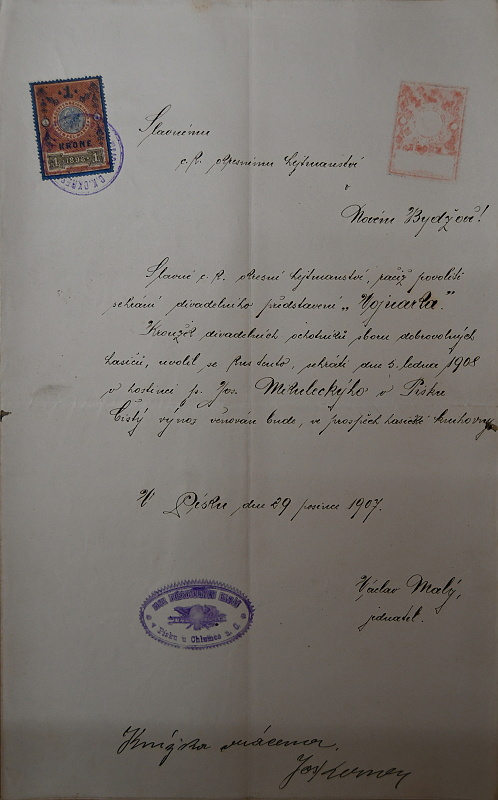 1
KRONE
1 1898 1
Slavnému
c. k. okresnímu hejtmanství
v
Novém Bydžově!
Slavné c. k. okresní hejtmanství, račiž povoliti
sehrání divadelního představení „Vojnarka."
Kroužek divadelních ochotníků sboru dobrovolných
hasičů, uvolil se kus tento, sehráti dne 5. ledna 1908
v hostinci p. Jos. Mikuleckýho v Písku
Čistý výnos věnován bude, ve prospěch hasičské knihovny
V Písku dne 29 prosince 1907.
Václav Malý,
jednatel.
v Písku u Chlumce n. C.
Knížka vrácena.